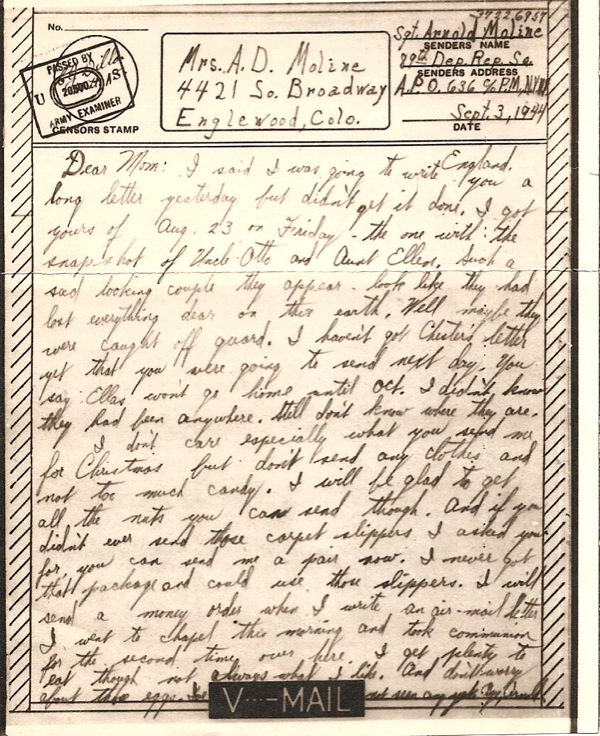 37226957
No.
PASSED BY
U S
ARMY EXAMINER
CENSORS STAMP
Mrs. A. D. Moline
4421 So. Broadway
Englewood, Colo.
Sgt. Arnold Moline
SENDERS' NAME
89th Dep. Rep. Sq.
SENDERS ADDRESS
A.P.O. 636 c/o P.M., N.Y., N.Y.
Sept. 3, 1944
DATE
England.
Dear Mom: I said I was going to write you a
long letter yesterday but didn't get it done. I got
yours of Aug. 23 on Friday - the one with the
snapshot of Uncle Otto and Aunt Ellen. Such a
sad looking couple they appear - look like they had
lost everything dear on this earth. Well maybe they
were caught off guard. I haven't got Chester's letter
yet that you were going to send next day. You
say Ellas won't go home until Oct. I didn't know
they had been anywhere. Still don't know where they are.
I don't care especially what you send me
for Christmas but don't send any clothes and
not too much candy. I will be glad to get
all the nuts you can send though. And if you
didn't ever send those carpet slippers I asked you
for you can send me a pair now. I never got
that package and could use those slippers. I will
send a money order when I write an air-mail letter
I went to chapel this morning and took communion
for the second time over here. I get plenty to
eat though not always what I like. And don't worry
about those eggs. I've not seen any yet. Bye Arnold
V···—MAIL